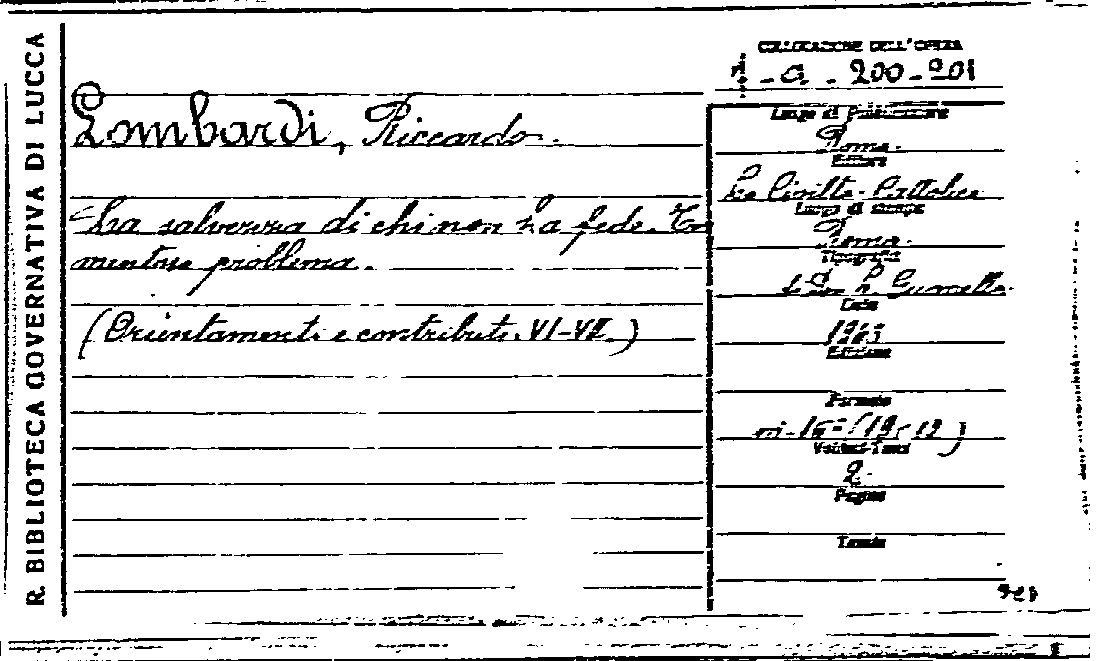 R. BIBLIOTECA GOVERNATIVA DI LUCCA
COLLOCAZIONE DELL'OPERA
- a - 200-201
Lombardi, Riccardo.
La salvezza di chi non ha fede. Tor
mentoso problema.
(Orientamenti e contributi. VI-VII.)
Luogo di Pubblicazione
Roma.
Editore
La Civiltà Cattolica
Luogo di stampa
Roma.
Tipografia
Data
Edizione
Formato
in-16=(19×12)
Volumi-Tomi
2.
Pagine
Tavole